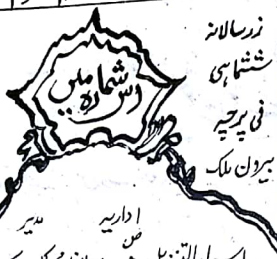 زرسالانہ
ششماہی
فی پرچہ
بیرون ملک
اس شمارہ میں
اداریہ
مدیر